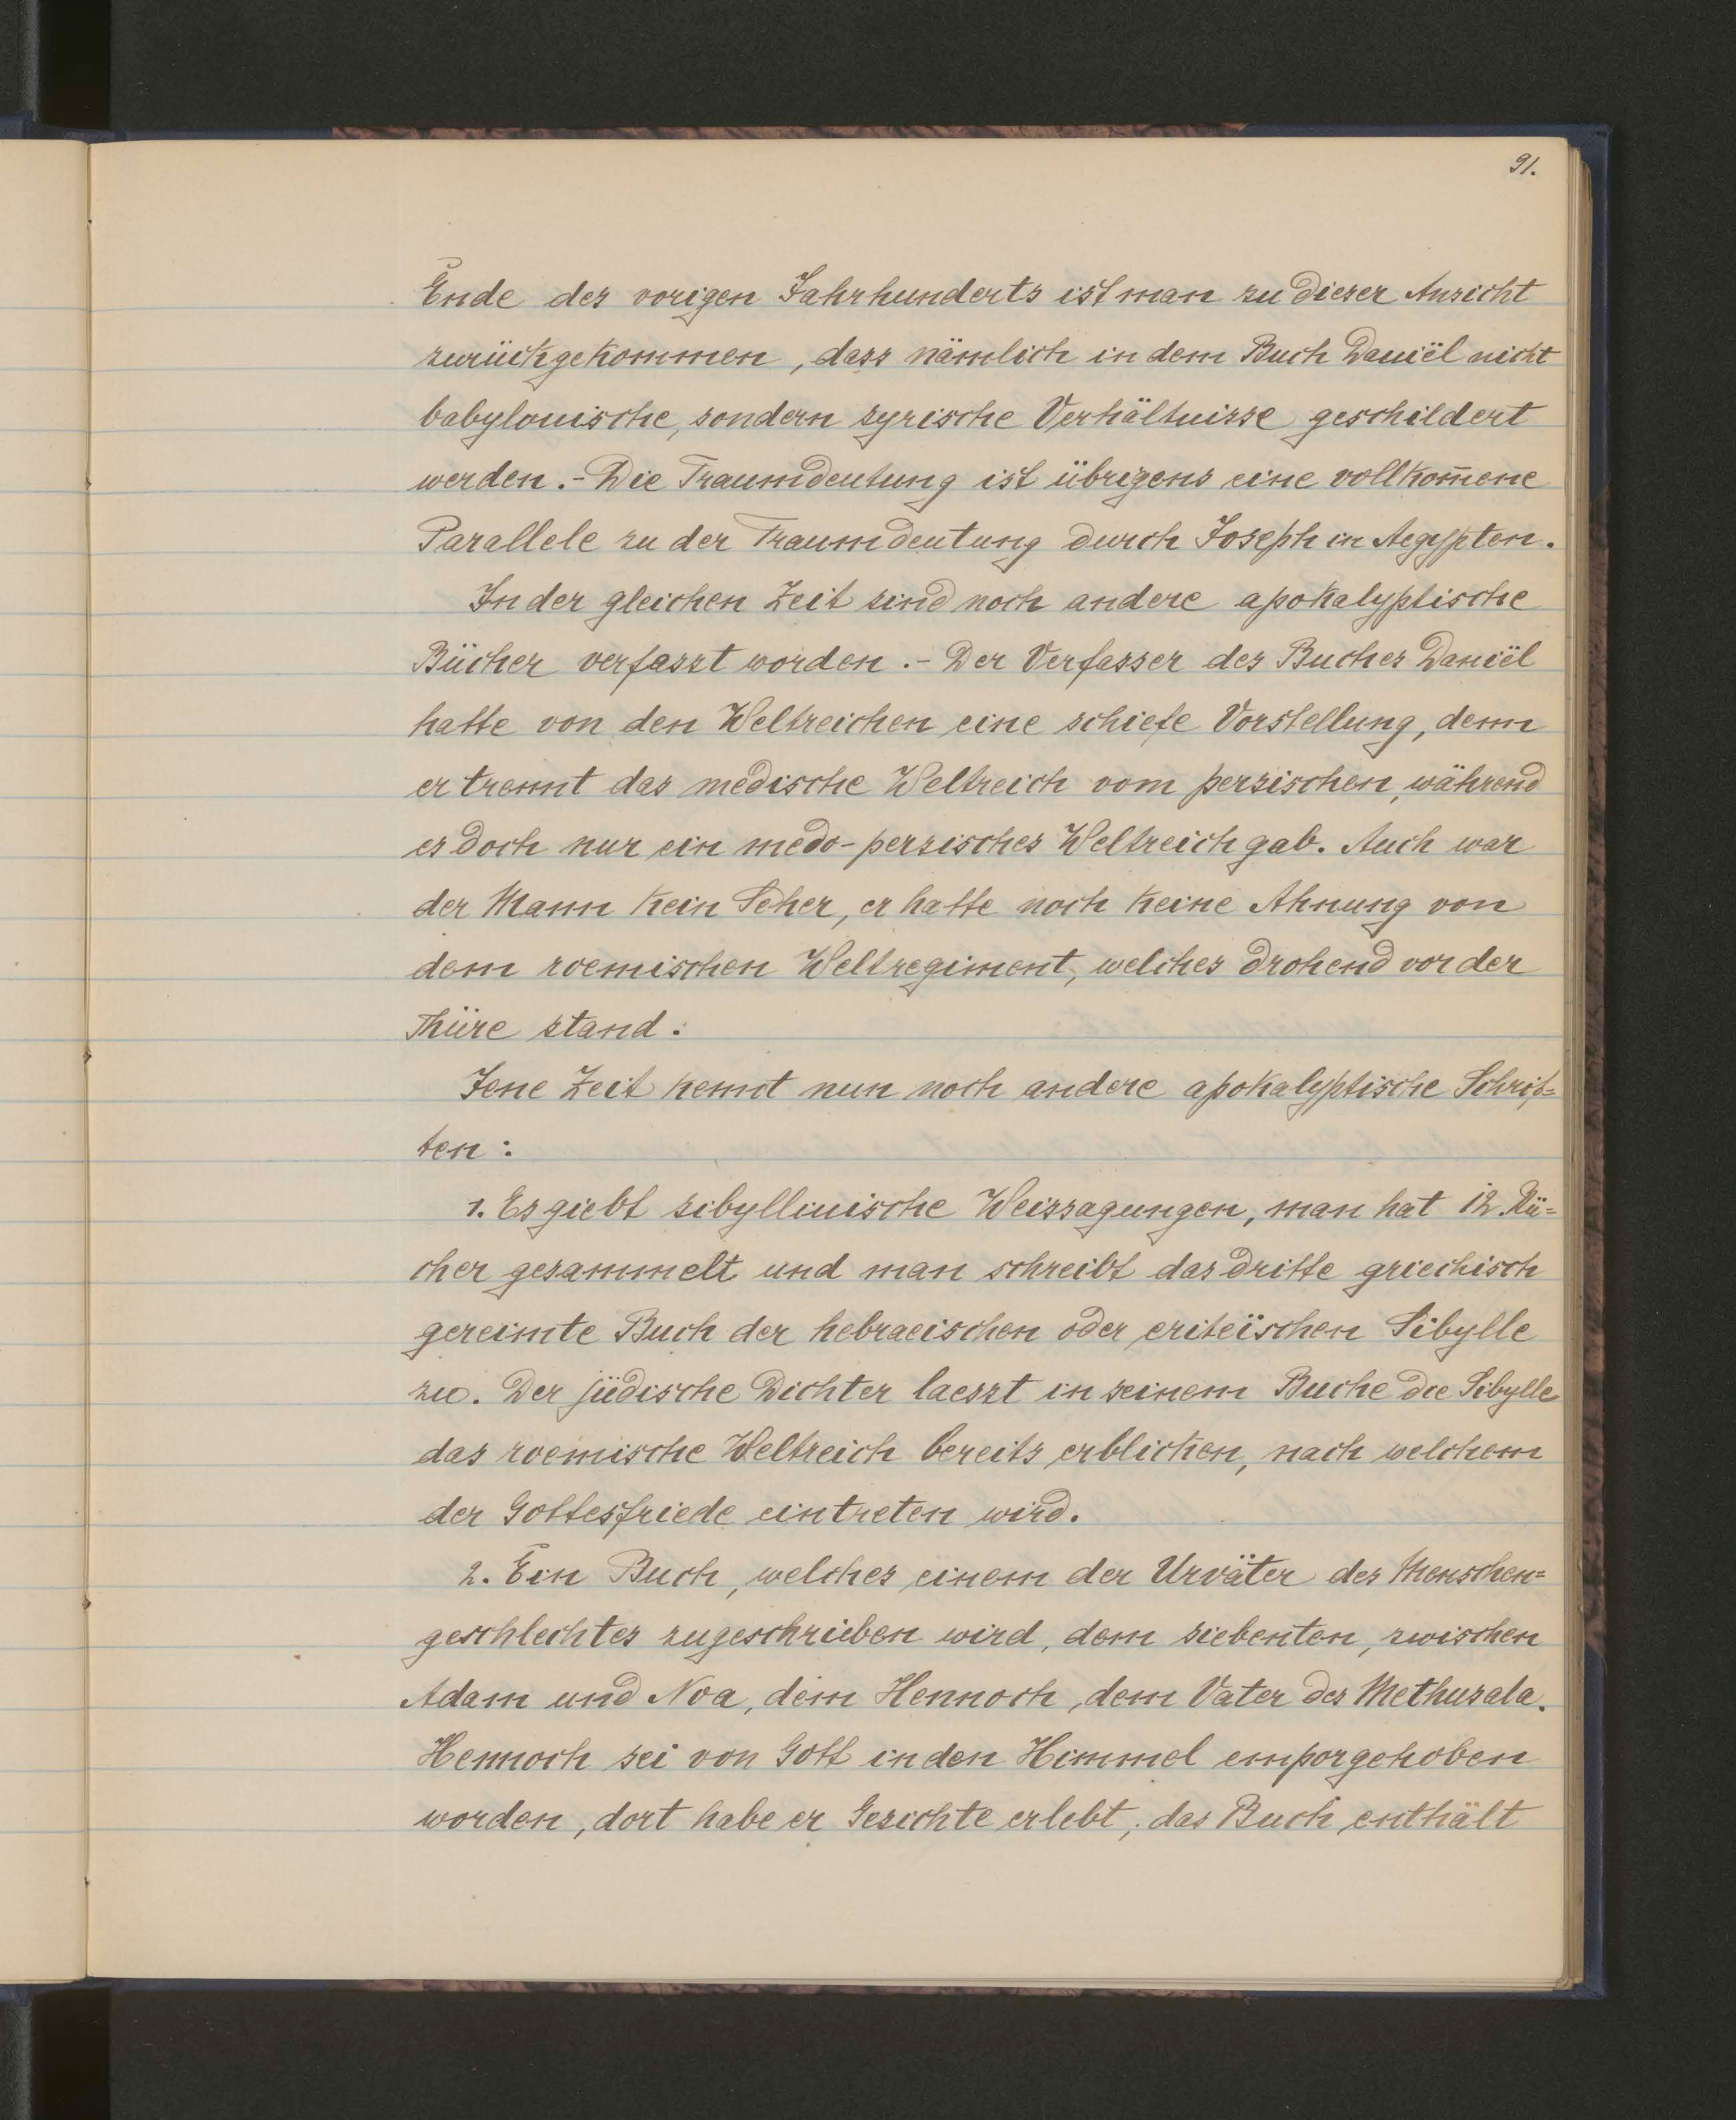 91.
Ende des vorigen Jahrhunderts ist man zu dieser Ansicht
zurückgekommen, dass nämlich in dem Buch Daniël nicht
babylonische, sondern syrische Verhältnisse geschildert
werden.- Die Traumdeutung ist übrigens eine vollkom̅ene
Parallele zu der Traumdeutung durch Joseph in Aegypten.
In der gleichen Zeit sind noch andere apokalyptische
Bücher verfasst worden.- Der Verfasser des Buches Daniël
hatte von den Weltreichen eine schiefe Vorstellung, denn
er trennt das medische Weltreich vom persischen, während
es doch nur ein medo-persisches Weltreich gab. Auch war
der Mann kein Seher, er hatte noch keine Ahnung von
dem roemischen Weltregiment, welches drohend vor der
Thüre stand.
Jene Zeit kennt nun noch andere apokalyptische Schrif=
ten:
1. Es giebt sibyllinische Weissagungen, man hat 12 Bü=
cher gesammelt und man schreibt das dritte griechisch
gereimte Buch der hebraeischen oder eriteïschen Sibylle
zu. Der jüdische Dichter laesst in seinem Buche die Sibylle
das roemische Weltreich bereits erblicken, nach welchem
der Gottesfriede eintreten wird.
2. Ein Buch, welches einem der Urväter des Menschen=
geschlechtes zugeschrieben wird, dem siebenten, zwischen
Adam und Noa, dem Hennoch, dem Vater des Methusala.
Hennoch sei von Gott in den Himmel emporgehoben
worden, dort habe er Gesichte erlebt; das Buch enthält